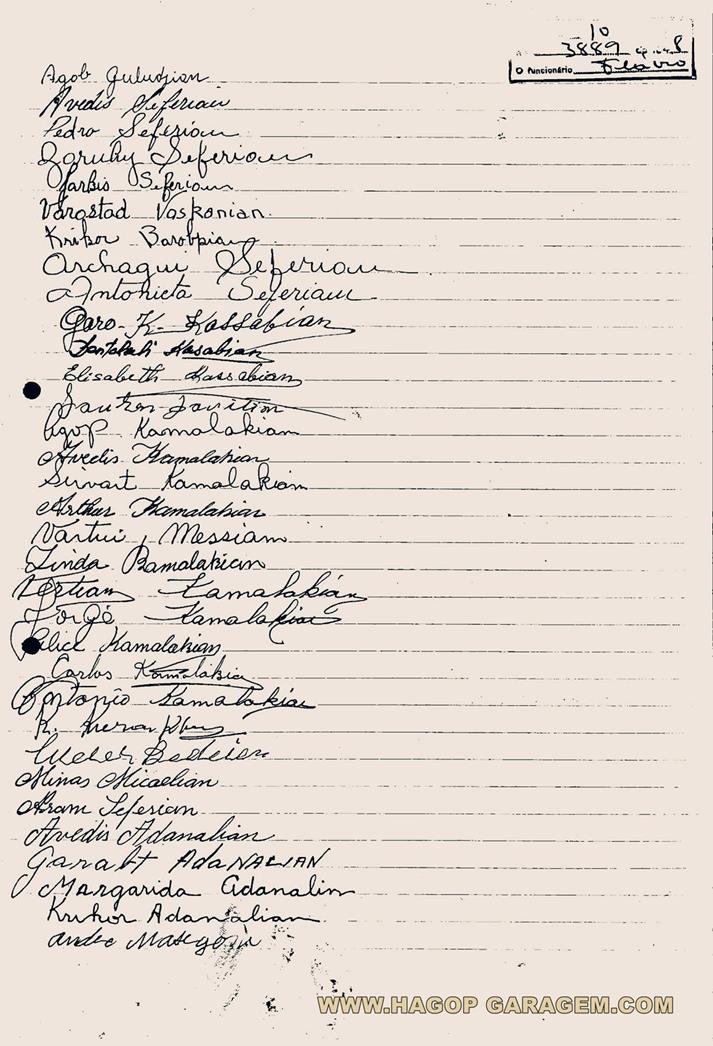 10
3889
O funcionário Flavio
Agob Guludjian
Avedis Seferian
Pedro Seferian
Zaruhy Seferian
Sarkis Seferian
Varastad Voskanian
Krikor
Archaqui Seferian
Antonieta Seferian
Garo K. Kassabian
Kasabian
Elisabeth Kassabian
Agop Kamalakian
Avedis Kamalakian
Sirvart Kamalakian
Arthur Kamalakian
Vartui Messiam
Linda Bamalakian
Kamalakian
Jorge Kamalakian
Alice Kamalakian
Carlos Kamalakian
Antonio Kamalakian
Minas Micaelian
Aram Seferian
Avedis Adanalian
Garabt AdaNALIAN
Margarida Adanalin
Krikor Adanalian
WWW.HAGOP GARAGEM.COM